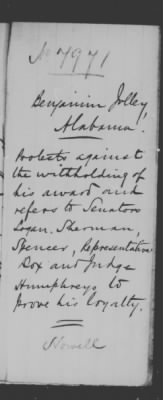 No 7971
Benjamin Jolley,
Alabama.
Protests against
the withholding of
his award and
refers to Senators
Logan. Sherman,
Spencer, Representative
Box and Judge
Humphreys to
prove his loyalty.
Howell